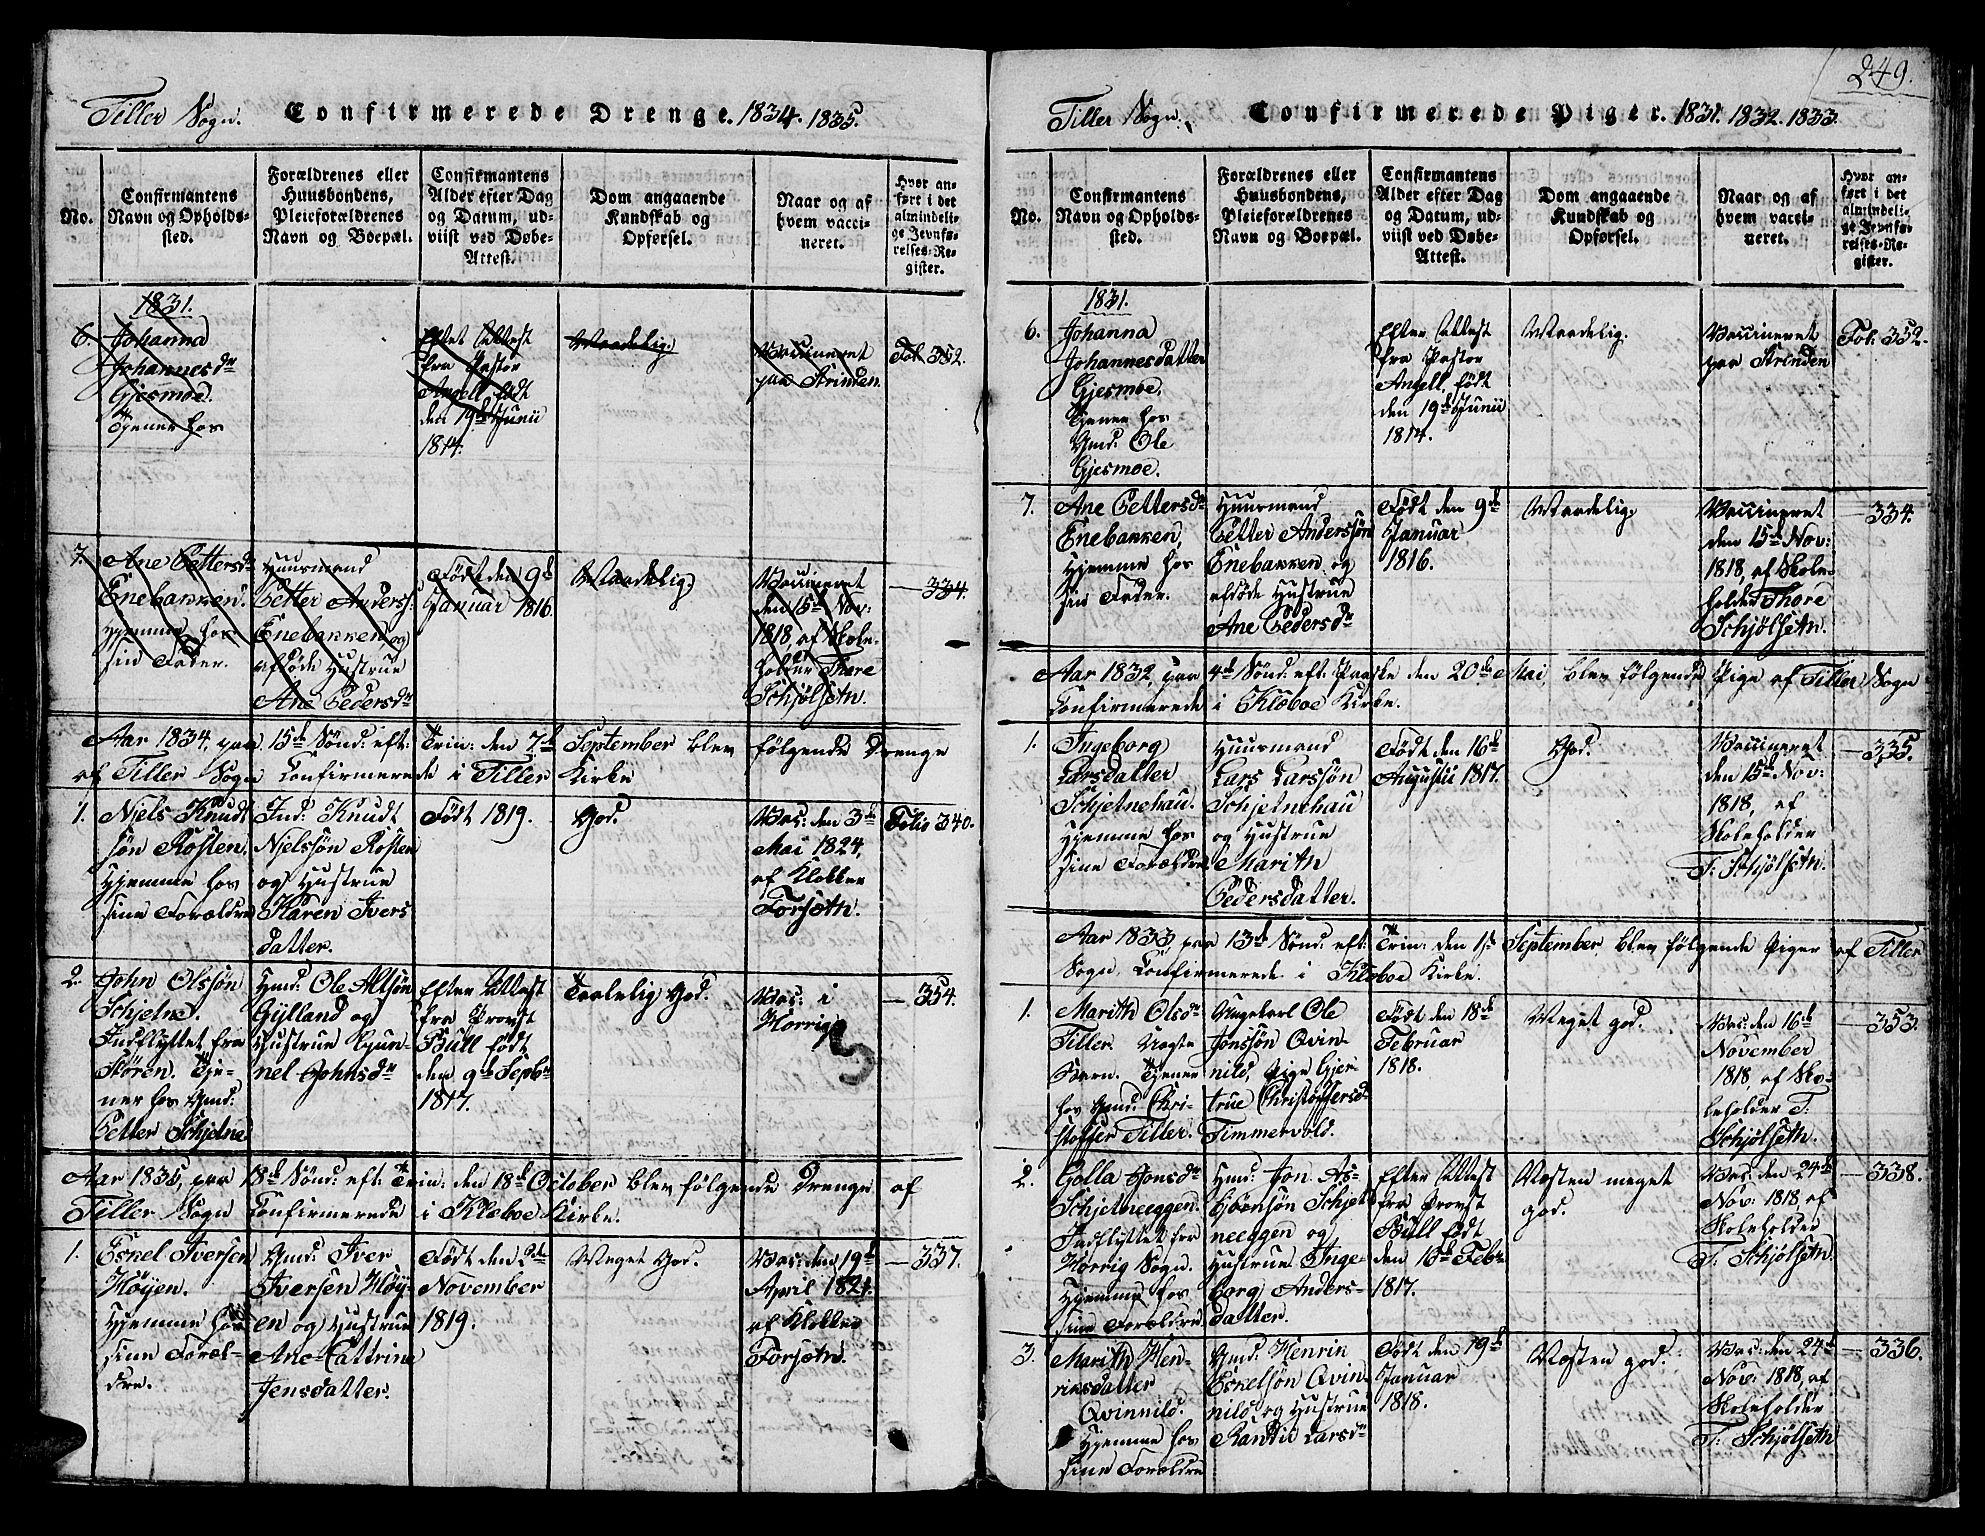 Tiller Sogn. Confirmerede Drenge. 1834. 1835.
No.
Confirmantens
Navn og Opholds-
sted.
Forældrenes eller
Huusbondens,
Pleieforældrenes
Navn og Boepæl.
Confirmantens
Alder efter Dag
og Datum, ud-
viist ved Døbe-
Attest.
Dom angaaende
Kundskab og
Opførsel.
Naar og af
hvem vacci-
neret.
Hvor an-
ført i det
almindeli-
ge Jevnfø-
relses-Re-
gister.
1831.
6. Johanna
Johannesdr
Gjesmoe.
Tjener hos
Efter Attest
fra Pastor
Angell, født
den 19de Junii
1814.
Maadelig.
Vaccineret
paa Strinden.
Fol. 352.
7. Ane Pettersdr
Enebakken.
Hjemme hos
sin Fader.
Huusmand
Petter Anderss:
Enebakken og
afdøde Hustrue
Ane Pedersdr
Født den 9de
Januar 1816.
Maadelig.
Vaccineret
den 15de Nov:
1818, af Skole-
holder Thore
Schjølseth.
— 334.
Aar 1834, paa 15de Sønd: eft: Trin: den 7de September blev følgende Drenge
af Tiller Sogn Confirmerede i Tiller Kirke
1. Niels Knudt
søn Rosten.
Hjemme hos
sine Forældre
Ind: Knudt
Nielssøn Rosten
og Hustrue
Karen Ivers
datter.
Født 1819.
God.
Vac: den 3de
Mai 1824,
af Klokker
Forseth.
Folio 340.
2. John Olssøn
Schjelne.
Indflyttet fra
Støren. Tje-
ner hos Gmd:
Petter Schjelne
Hmd: Ole Altsøn
Gylland og
Hustrue Gun-
nel Johnsdr
Efter Attest
fra Provst
Bull født
den 9de Septbr
1817.
Taalelig God.
Vac: i
Horrig
— 354.
Aar 1835, paa 18de Sønd: eft: Trin: den 18de October blev følgende Drenge af
Tiller Sogn Confirmerede i Klæboe Kirke.
1. Eskel Iversen
Høyen.
Hjemme hos
sine Foræl-
dre.
Gmd: Iver
Iversen Høy-
en og Hustrue
Ane Cattrine
Jensdatter.
Født den 2de
November
1819.
Meget God.
Vac: den 19de
April 1821.
af Klokker
Forseth.
— 337.
249.
Tiller Sogn. Confirmerede Piger. 1831. 1832. 1833.
No.
Confirmantens
Navn og Opholds-
sted.
Forældrenes eller
Huusbondens,
Pleieforældrenes
Navn og Boepæl.
Confirmantens
Alder efter Dag
og Datum, ud-
viist ved Døbe-
Attest.
Dom angaaende
Kundskab og
Opførsel.
Naar og af
hvem vacci-
neret.
Hvor an-
ført i det
almindeli-
ge Jevnfø-
relses-Re-
gister.
1831.
6. Johanna
Johannesdatter
Gjesmoe.
Tjener hos
Gmd: Ole
Gjesmoe.
Efter Attest
fra Pastor
Angell, født
den 19de Junii
1814.
Maadelig.
Vaccineret
paa Strinden
Fol. 352.
7. Ane Pettersdr
Enebakken,
Hjemme hos
sin Fader.
Huusmand
Petter Anderssøn
Enebakken og
afdøde Hustrue
Ane Pedersdr
Født den 9de
Januar
1816.
Maadelig.
Vaccineret
den 15de Nov:
1818, af Skole-
holder Thore
Schjølseth.
— 334.
Aar 1832, paa 4de Sønd: eft: Paaske den 20de Mai, blev følgende Pige af Tiller Sogn
Confirmerede i Klæboe Kirke.
1. Ingeborg
Larsdatter
Schjetnehau.
Hjemme hos
sine Forældre
Huusmand
Lars Larssøn
Schjetnehau
og Hustrue
Marith
Pedersdatter.
Født den 16de
Augustii 1817.
God.
Vaccineret
den 15de Nov:
1818, af
Skoleholder
T: Schjølseth.
— 335.
Aar 1833, paa 13de Sønd: eft: Trin: den 1ste September, blev følgende Piger af Tiller
Sogn Confirmerede i Klæboe Kirke.
1. Marith Olsdr
Tiller. Uægte
Barn. Tjener
hos Gmd: Chri-
stoffer Tiller.
Ungekarl Ole
Jonssøn Qvin-
nild, Pige Gjer-
true Christoffersdr
Timmervold.
Født den 18de
Februar
1818.
Meget god.
Vac: den 16de
November
1818, af Sko-
leholder T:
Schjølseth.
— 353.
2. Golla Jonsdr
Schjetneeggen.
Indflyttet fra
Horrig Sogn.
Hjemme hos
sine Forældre
Hmd: Jon As-
bjørnsøn Schjet-
neeggen og
Hustrue Inge-
borg Anders-
datter.
Efter Attest
fra Provst
Bull født
den 15de Febr
1817.
Næsten meget
god.
Vac: den 24de
Nov: 1818, af
Skoleholder
T: Schjølseth.
— 338.
3. Marith Hen-
riksdatter
Qvinnild.
Hjemme hos
sine Forældre
Gmd: Henrik
Eskelsøn Qvin-
nild og Hustrue
Randii Larsdr
Født den 19de
Januar
1818.
Næsten god.
Vac: den 24de
Nov: 1818, af
Skoleholder
T: Schjølseth
— 336.